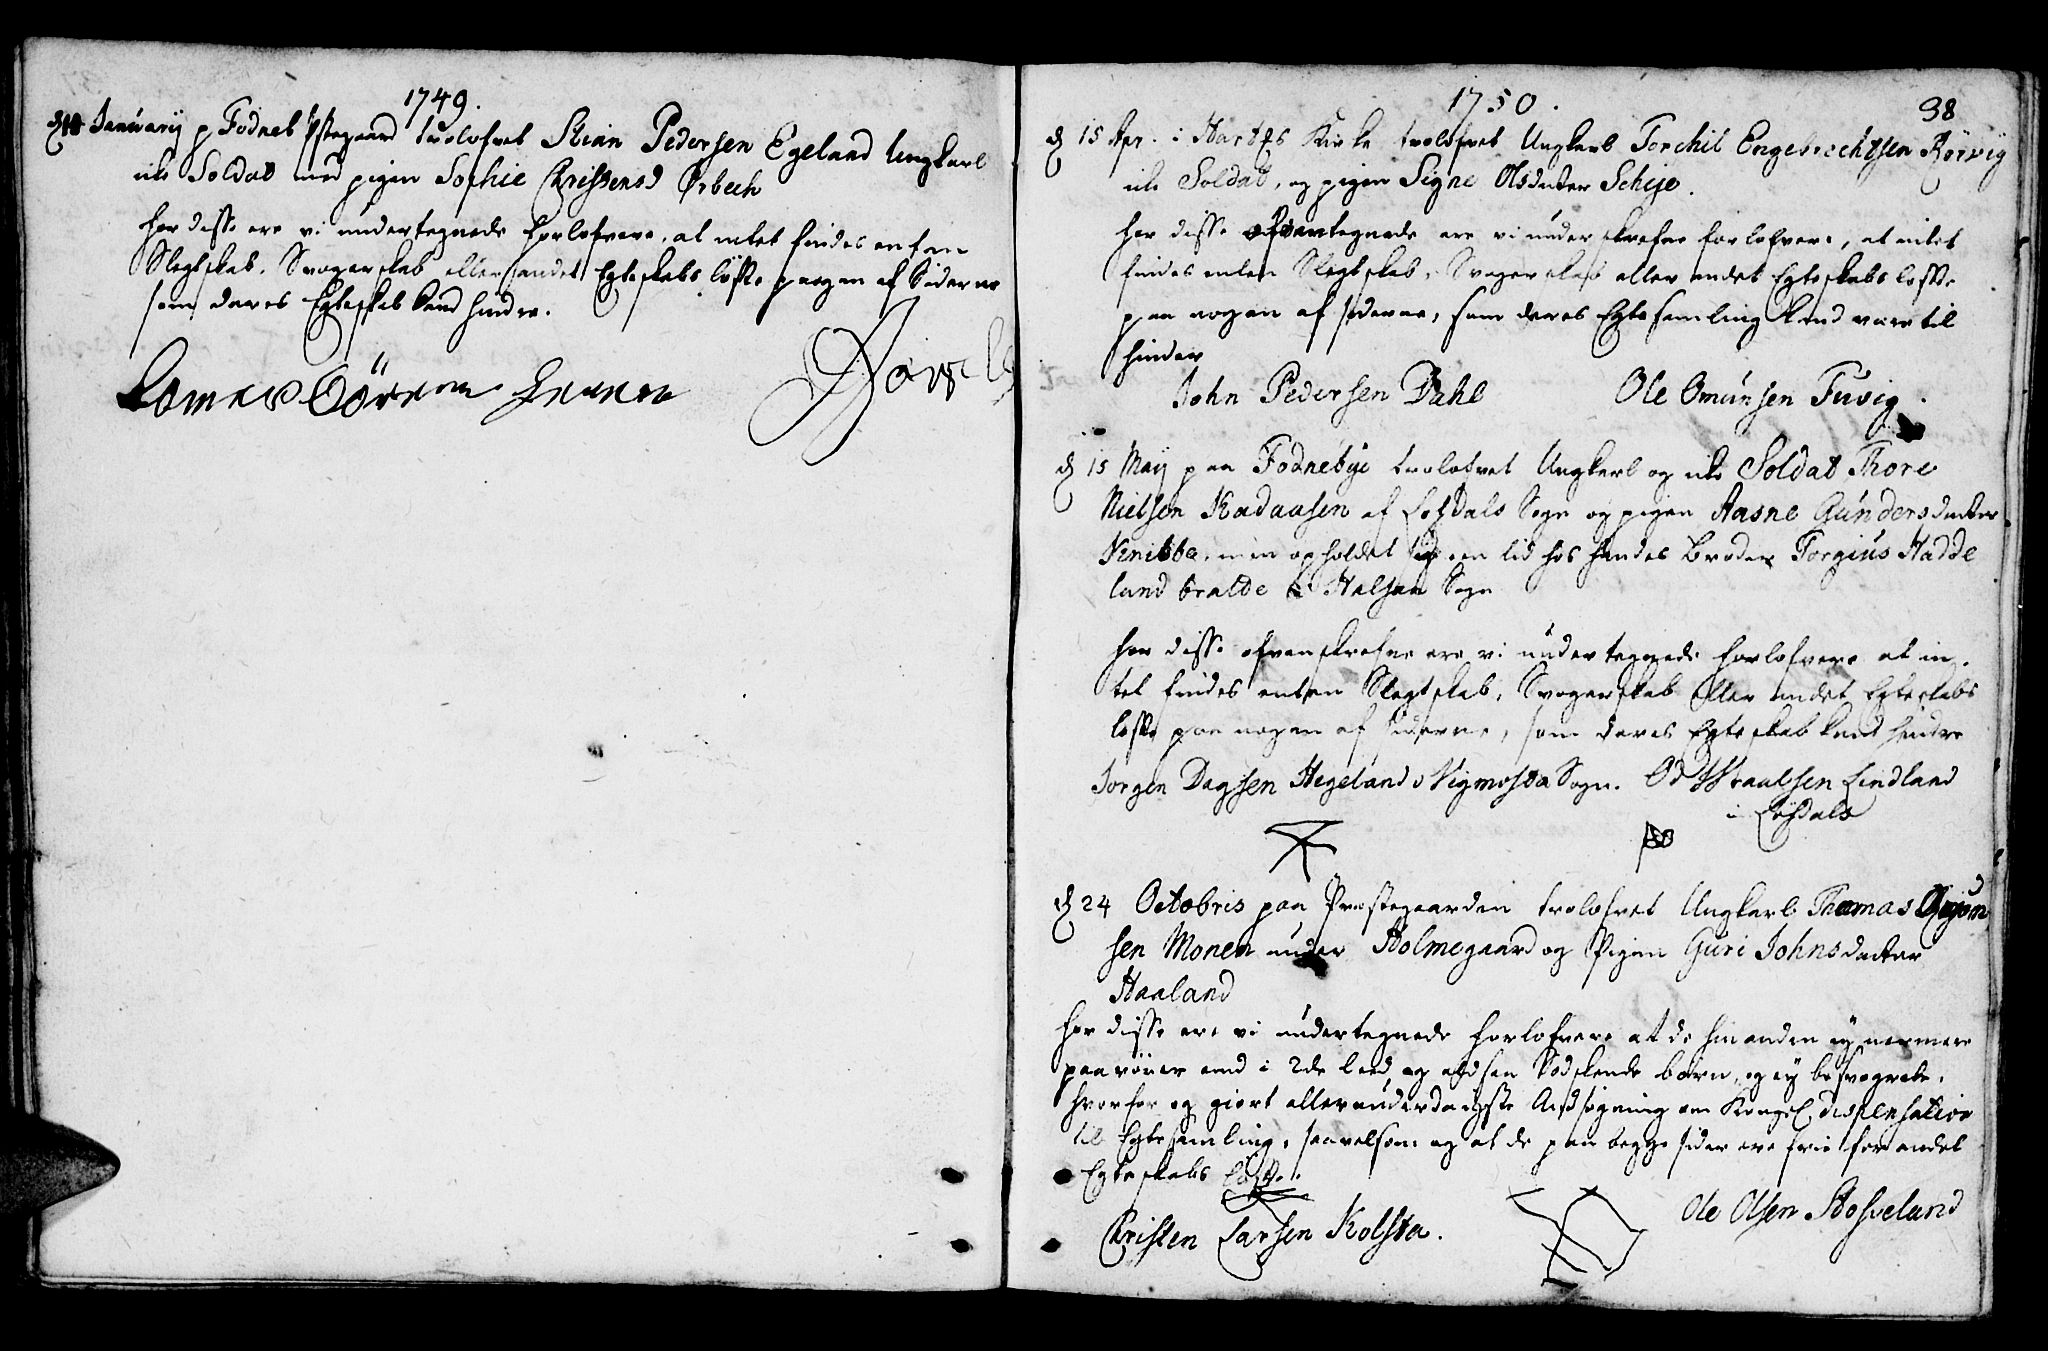 1749.
d 10 Januarij p Fodneb Pstegaard trolofvet Stian Pedersen Egeland Ungkarl
icke Soldat med pigen Sophie Christensd Ørbech
for disse ere vi undertegnede forlofvere, at intet findes enten
Slegtskab, Svogerskab eller andet Egteskabs løfte paa nogen af Siderne
som deres Egteskab kand hindre.
Sören
1750.
38
d 15 Apr. i Hart Kirke trolofvet Ungkarl Torchil Engebrechtsen Rörvig
icke Soldat, og pigen Signe Olsdatter Schye.
for disse ofventegnede ere vi underskrefne forlofvere, at intet
findes enten Slegtskab, Svogerskab eller andet Egteskabs løfte
paa nogen af siderne, som deres Egtesamling kand være til
hinder
John Pedersen Dahl Ole Omunsen Fuvig.
d 15 Maij paa Fodnebye trolofvet Ungkarl og icke Soldat Thore
Nielsen Kadaasen af Løfdals Sogn og pigen Aasne Gundersdatter
Knibbe, men opholdet sig en tid hos hendes Broder Torgius Hadde
land i Halsaa Sogn
for disse ofvenskrefne ere vi undertegnede forlofvere at in-
tet findes enten Slegtskab, Svogerskab eller andet Egteskabs
løfte paa nogen af siderne, som deres Egteskab kand hindre
Jorgen Dagsen Hegeland i Vigmosta Sogn. Od Wraalsen Lindland
i Løfdals
d 24 Octobris paa Præstegaarden trolofvet Ungkarl Thomas
sen Monen under Holmegaard og Pigen Guri Johnsdatter
Haaland
for disse ere vi undertegnede forlofvere at de hinanden ey nærmere
paarörer end i 2de leed og ere Södskende börn, og ey besvogrede,
hvorfor og giort allerunderdanigste Ansögning om Kongel dispensation
til Egtesamling, saavelsom og at de paa begge sider ere frie for andet
Egteskabs løfte.
Christen Larsen Kolsta. Ole Olsen Stosveland